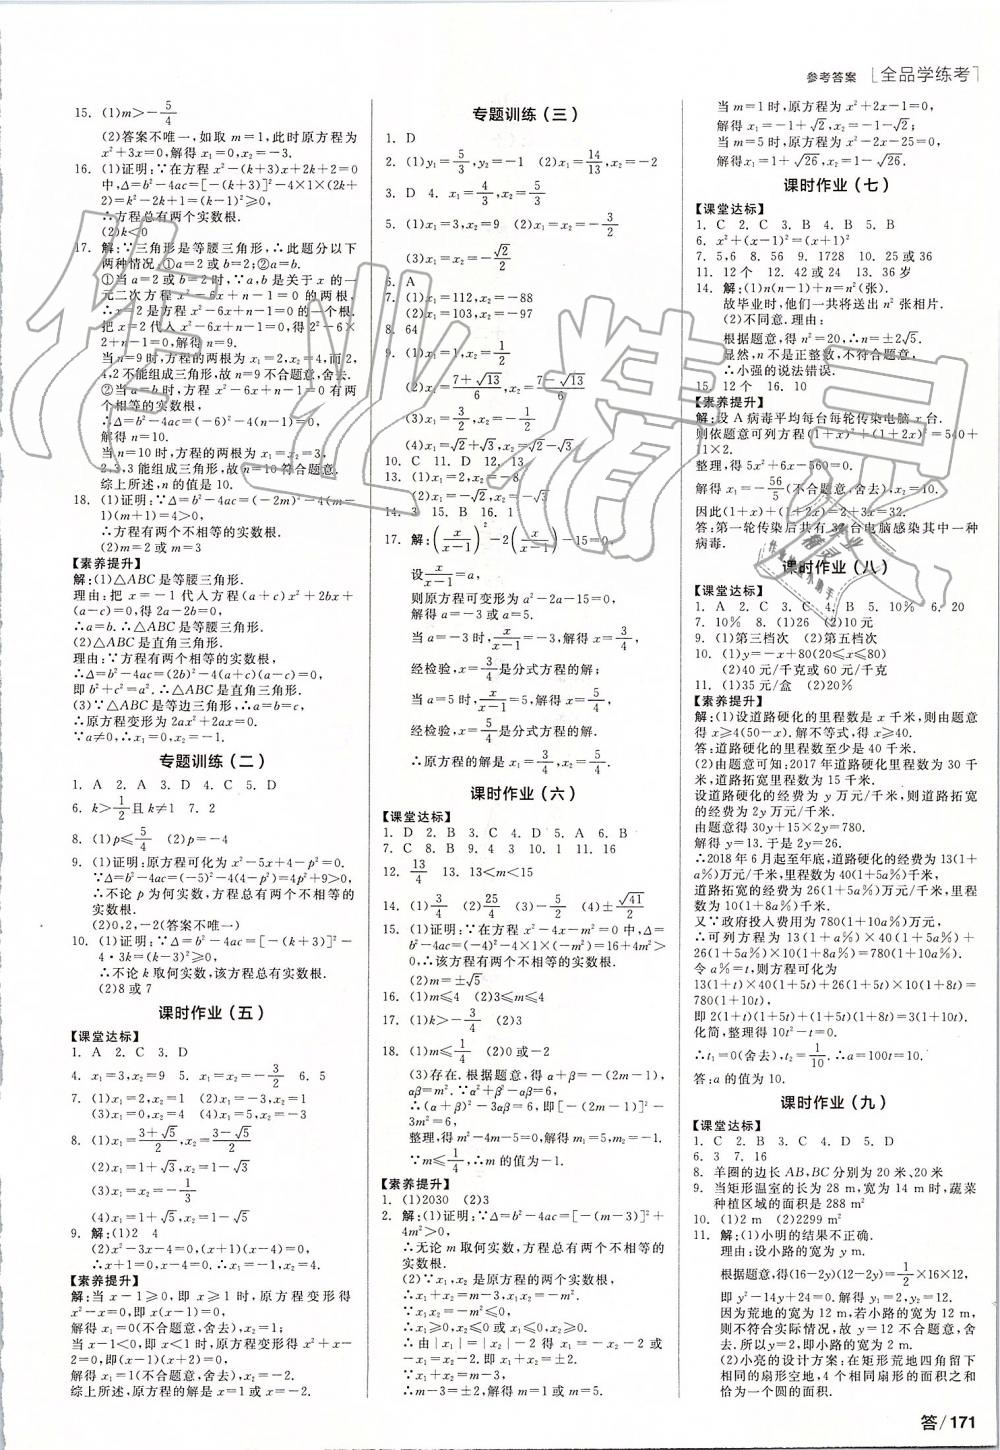 参考答案 [全品学练考]
15. (1)m>-5/4
(2)答案不唯一,如取m=1,此时原方程为
x²+3x=0,解得x₁=0,x₂=-3.
16. (1)证明:∵在方程x²-(k+3)x+2k+2=0
中,Δ=b²-4ac=[-(k+3)]²-4×1×(2k+
2)=k²-2k+1=(k-1)²≥0,
∴方程总有两个实数根.
(2)k<0
17. 解:∵三角形是等腰三角形,∴此题分以下
两种情况,①a=2或b=2;②a=b.
①当a=2或b=2时,∵a,b是关于x的一
元二次方程x²-6x+n-1=0的两根,
∴x=2是方程x²-6x+n-1=0的一个根.
把x=2代入x²-6x+n-1=0,得2²-6×
2+n-1=0,解得n=9.
当n=9时,方程的两根为x₁=2,x₂=4,而2,
4,2不能组成三角形,故n=9不合题意,舍去.
②当a=b时,方程x²-6x+n-1=0有两
个相等的实数根,
∴Δ=b²-4ac=(-6)²-4(n-1)=0,
解得n=10.
当n=10时,方程的两根为x₁=x₂=3,
2,3,3能组成三角形,故n=10符合题意.
综上所述,n的值是10.
18. (1)证明:∵Δ=b²-4ac=(-2m)²-4(m-
1)(m+1)=4>0,
∴方程有两个不相等的实数根.
(2)m=2或m=3
【素养提升】
解:(1)△ABC是等腰三角形.
理由:把x=-1代入方程(a+c)x²+2bx+
(a-c)=0,得2a-2b=0,
∴a=b.∴△ABC是等腰三角形.
(2)△ABC是直角三角形.
理由:∵方程有两个相等的实数根,
∴Δ=b²-4ac=(2b)²-4(a+c)(a-c)=0,
即b²+c²=a².∴△ABC是直角三角形.
(3)∵△ABC是等边三角形,∴a=b=c,
∴原方程变形为2ax²+2ax=0.
∵a≠0,∴x₁=0,x₂=-1.
专题训练(二)
1. A 2. A 3. D 4. C 5. D
6. k>1/2且k≠1 7. 2
8. (1)p≤5/4 (2)p=-4
9. (1)证明:原方程可化为x²-5x+4-p²=0.
∵Δ=b²-4ac=(-5)²-4(4-p²)=4p²+9>0,
∴不论p为何实数,方程总有两个不相等的
实数根.
(2)0,2,-2(答案不唯一)
10. (1)证明:∵Δ=b²-4ac=[-(k+3)]²-
4·3k=(k-3)²≥0,
∴不论k取何实数,该方程总有实数根.
(2)8或7
课时作业(五)
【课堂达标】
1. A 2. C 3. D
4. x₁=3,x₂=9 5. x₁=x₂=-3/2 6. 5
7. (1)x₁=2,x₂=1 (2)x₁=-3,x₂=1
(3)x₁=0,x₂=4 (4)x₁=5,x₂=-3
8. (1)x₁=(3+√5)/2,x₂=(3-√5)/2
(2)x₁=1+√3,x₂=1-√3
(3)x₁=x₂=-1/3
(4)x₁=1+√5,x₂=1-√5
9. 解:(1)2 4
(2)x²-3x-4=0,(x+1)(x-4)=0,
∴x+1=0,x-4=0.∴x₁=-1,x₂=4.
【素养提升】
解:当x-1≥0,即x≥1时,原方程变形得
x²-x=0,即x(x-1)=0,
解得x₁=0(不合题意,舍去),x₂=1;
当x-1<0,即x<1时,原方程变形得x²+x-
2=0,即(x-1)(x+2)=0,
解得x₁=1(不合题意,舍去),x₂=-2.
综上所述,原方程的解是x₁=1,x₂=-2.
专题训练(三)
1. D
2. (1)y₁=5/3,y₂=-1 (2)x₁=14/13,x₂=-2
3. D 4. x₁=4/3,x₂=5/3
5. (1)x₁=3,x₂=9 (2)x₁=0,x₂=-3/2
(3)x₁=x₂=-√2/2
6. A
7. (1)x₁=112,x₂=-88
(2)x₁=103,x₂=-97
8. 64
9. (1)x₁=1,x₂=-7/3
(2)x₁=(7+√13)/6,x₂=(7-√13)/6
(3)x₁=-1/2,x₂=4
(4)x₁=√2+√3,x₂=√2-√3
10. C 11. D 12. 13
13. (1)x₁=2,x₂=-8
(2)x₁=-√2,x₂=-√6
14. 3 15. B 16. 1
17. 解:(x/(x-1))²-2(x/(x-1))-15=0,
设x/(x-1)=a,
则原方程可变形为a²-2a-15=0,
解得a=-3或a=5.
当a=-3时,x/(x-1)=-3,解得x=3/4,
经检验,x=3/4是分式方程的解;
当a=5时,x/(x-1)=5,解得x=5/4,
经检验,x=5/4是分式方程的解.
∴原方程的解是x₁=3/4,x₂=5/4.
课时作业(六)
【课堂达标】
1. D 2. B 3. C 4. D 5. A 6. B
7. C 8. B 9. 4 3 10. 1 11. 16
12. 13/4 13. 13<m<15
14. (1)3/4 (2)25/4 (3)-5/2 (4)±√41/2
15. (1)证明:∵在方程x²-4x-m²=0中,Δ=
b²-4ac=(-4)²-4×1×(-m²)=16+4m²>
0,∴该方程有两个不相等的实数根.
(2)m=±√5
16. (1)m≤4 (2)3≤m≤4
17. (1)k>-3/4 (2)3
18. (1)m≤1/4 (2)0或-2
(3)存在.根据题意,得α+β=-(2m-1),
αβ=m².∵α²+β²-αβ=6,
∴(α+β)²-3αβ=6,即[-(2m-1)]²-
3m²=6,
整理,得m²-4m-5=0,解得m₁=5,m₂=-1.
∵m≤1/4,∴m的值为-1.
【素养提升】
1. (1)2030 (2)3
2. 解:(1)证明:∵Δ=b²-4ac=[-(m-3)]²-
∴无论m取何实数,该方程总有两个不相等的
实数根.
(2)∵x₁,x₂是原方程的两根,
∴x₁≥0,x₂≤0或x₁≤0,x₂≥0.
∴m-3=±2,解得m=5或m=1.
当m=1时,原方程为x²+2x-1=0,
解得x₁=-1+√2,x₂=-1-√2;
当m=5时,原方程为x²-2x-25=0,
解得x₁=1+√26,x₂=1-√26.
课时作业(七)
【课堂达标】
1. C 2. C 3. B 4. B 5. B
6. x²+(x-1)²=(x+1)²
7. 5,6 8. 56 9. 1728 10. 25或36
11. 12个 12. 42或24 13. 36岁
14. 解:(1)n(n-1)+n=n²(张).
故毕业时,他们一共将送出n²张相片.
(2)不同意.理由:
根据题意,得n²=20,解得n=±2√5.
显然,n不是正整数,不符合题意.
∴小强的说法错误.
15. 12个 16. 10
【素养提升】
解:设A病毒平均每台每轮传染电脑x台.
则依题意可列方程(1+x)²+(1+2x)²=540+
1×2.
整理,得5x²+6x-560=0.
解得x₁=-56/5(不合题意,舍去),x₂=10.
因此(1+x)+(1+2x)=2+3x=32.
答:第一轮传染后共有32台电脑感染其中一种
病毒.
课时作业(八)
【课堂达标】
1. A 2. C 3. C 4. B 5. 10% 6. 20
7. 10% 8. (1)26 (2)10元
9. (1)第三档次 (2)第五档次
10. (1)y=-x+80(20≤x≤80)
(2)40元/千克或60元/千克
11. (1)35元/盒 (2)20%
【素养提升】
解:(1)设道路硬化的里程数是x千米,则由题意
得x≥4(50-x).解不等式,得x≥40.
答:道路硬化的里程数至少是40千米.
(2)由题意可知:2017年道路硬化里程数为30千
米,道路拓宽里程数为15千米.
设道路硬化的经费为y万元/千米,道路拓宽
的经费为2y万元/千米,
由题意得30y+15×2y=780.
解得y=13.于是2y=26.
∴2018年6月起至年底,道路硬化的经费为13(1+
a%)万元/千米,
道路拓宽的经费为26(1+5a%)万元/千米,
又∵政府投入费用为780(1+10a%)万元,
∴可列方程为13(1+a%)×40(1+5a%)+
26(1+5a%)×10(1+8a%)=780(1+10a%).
令a%=t,则方程可化为
13(1+t)×40(1+5t)+26(1+5t)×10(1+8t)=
780(1+10t),
即2(1+t)(1+5t)+(1+5t)(1+8t)=3(1+10t).
化简,整理得10t²-t=0,
∴t₁=0(舍去),t₂=1/10.∴a=100t=10.
答:a的值为10.
课时作业(九)
【课堂达标】
1. C 2. B 3. C 4. A 5. D
6. 3 7. 16
8. 羊圈的边长AB,BC分别为20米、20米
9. 当矩形温室的长为28 m,宽为14 m时,蔬菜
种植区域的面积是288 m²
10. (1)2 m (2)2299 m²
11. 解:(1)小明的结果不正确.
理由:设小路的宽为y m.
根据题意,得(16-2y)(12-2y)=1/2×16×12,
即y²-14y+24=0.解得y₁=2,y₂=12.
因为荒地的宽为12 m,若小路的宽为12 m,
则不符合实际情况,故y=12不符合题意,舍
去.所以,y=2.
(2)小亮的设计方案:在矩形荒地四角留下
相同的扇形空地,4个相同扇形的面积之和
恰为一个圆的面积.
答/171